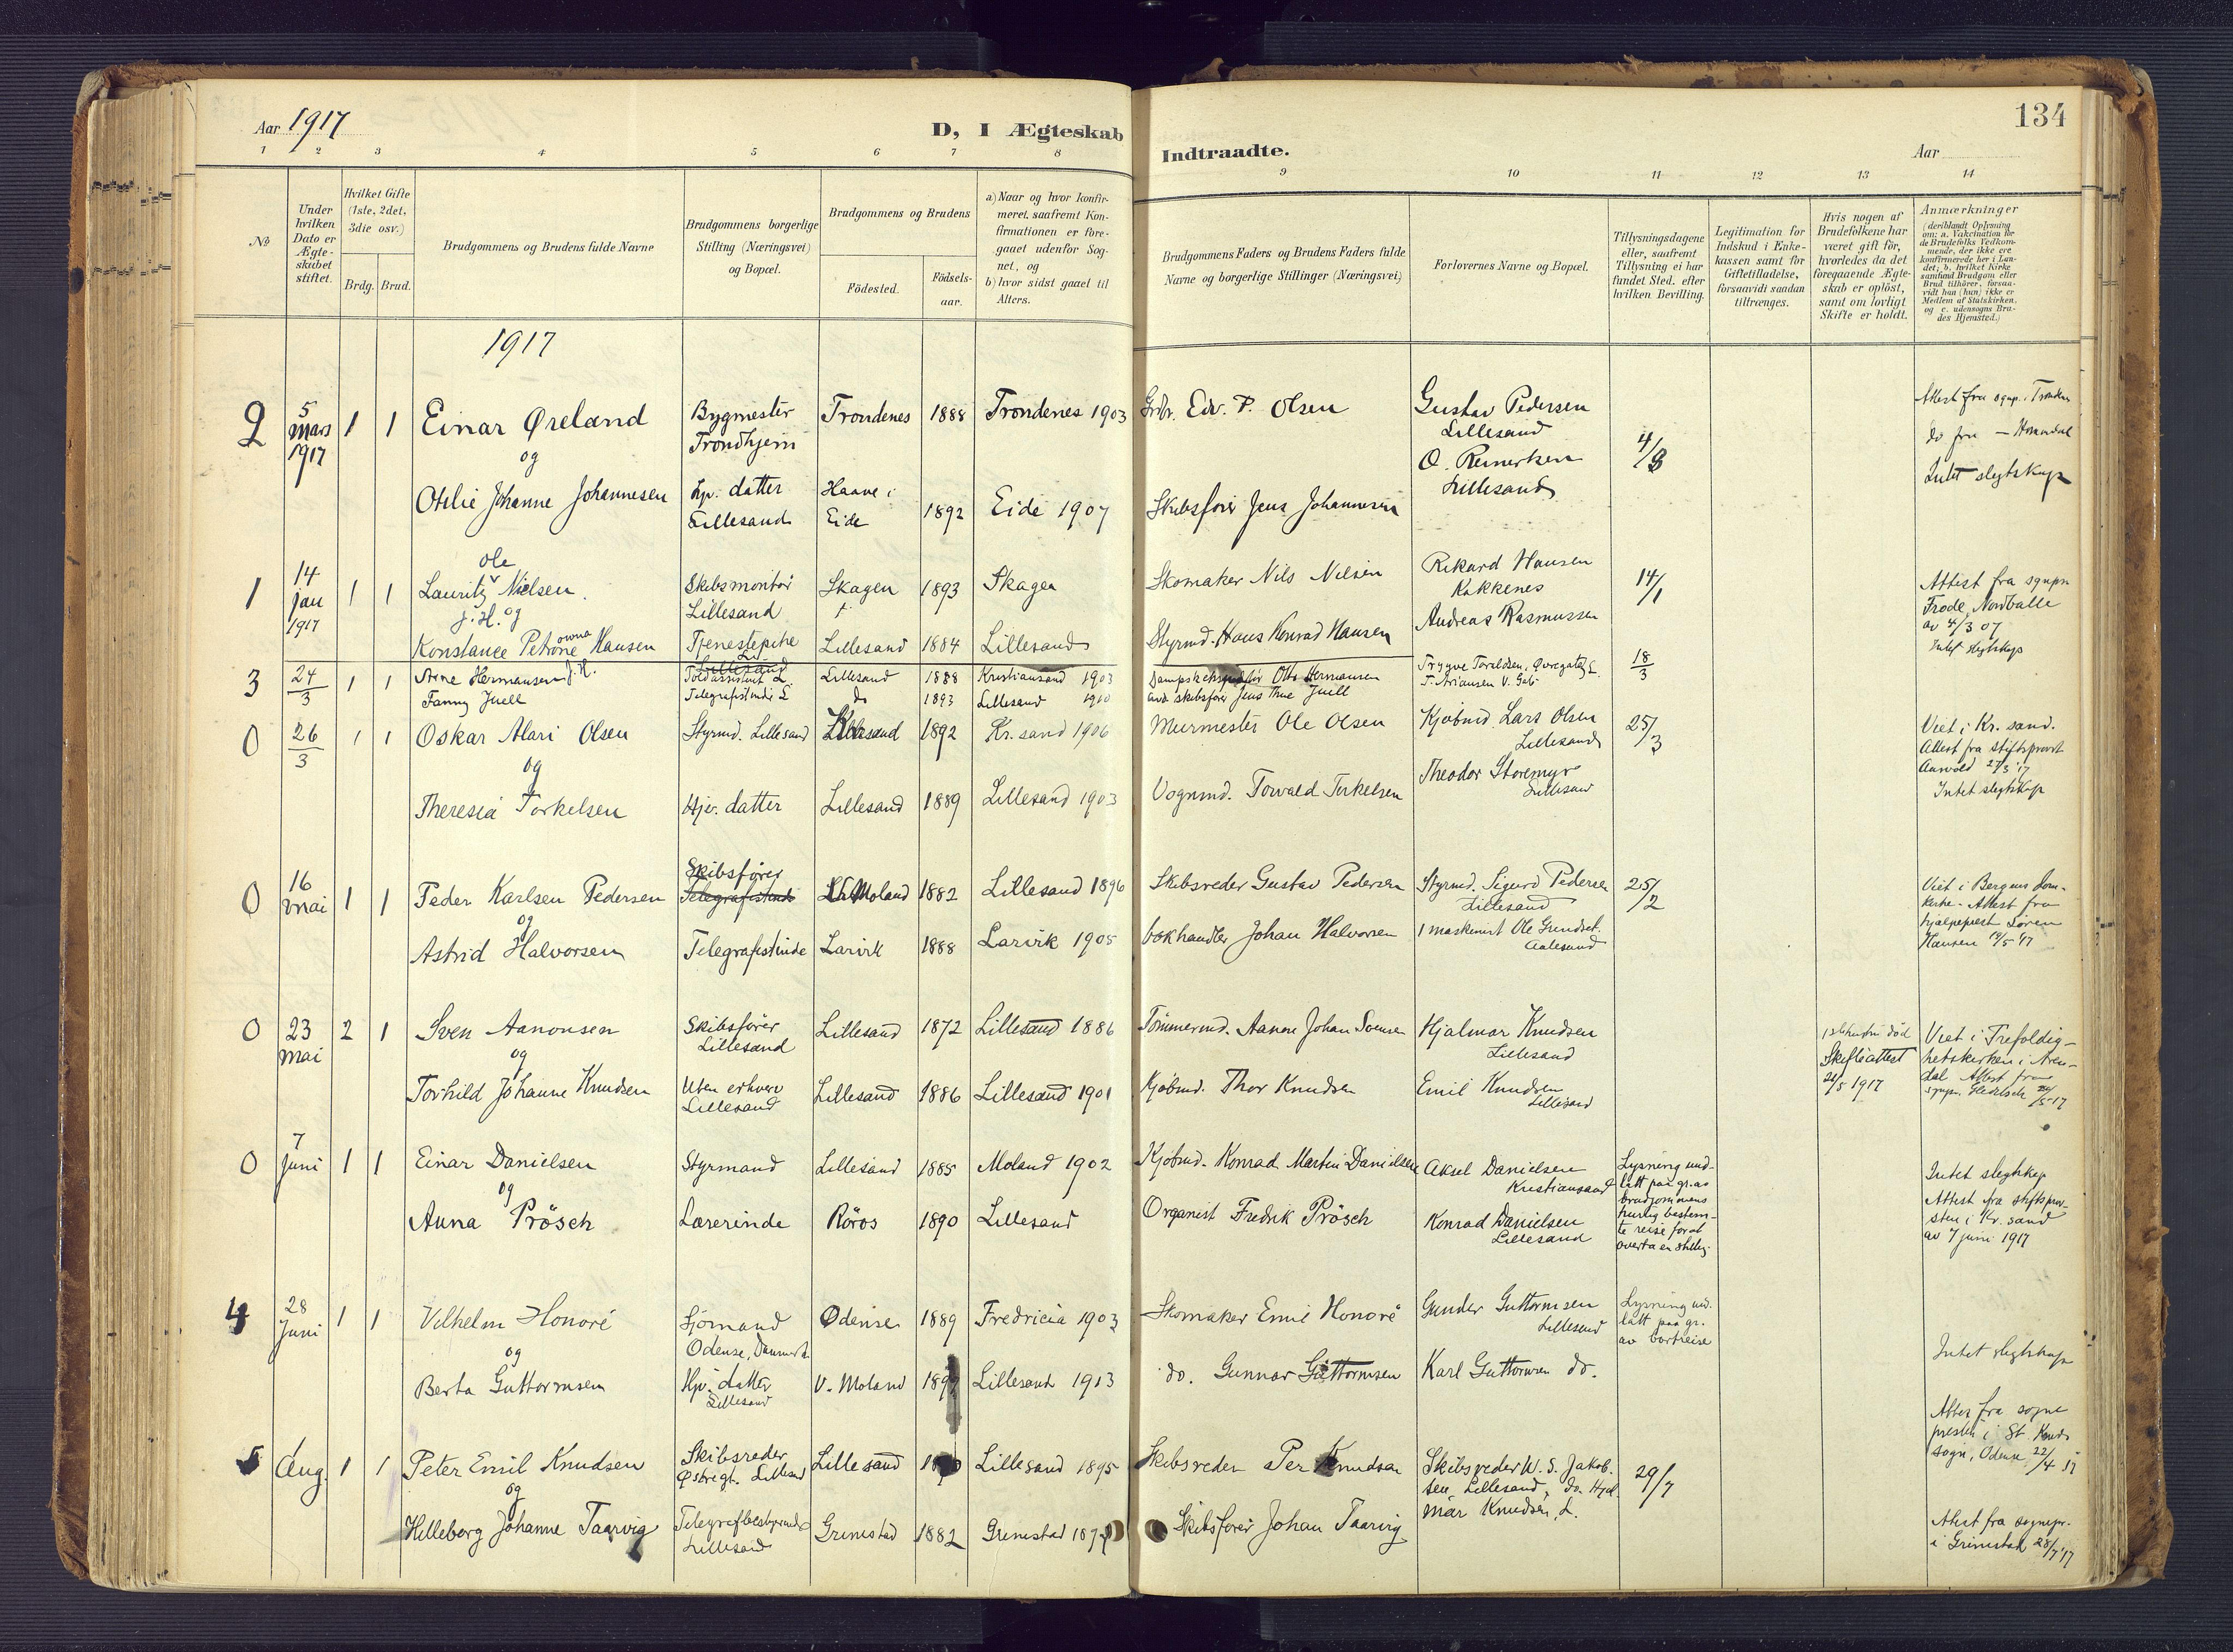 Aar 1917
D, I Ægteskab
Indtraadte.
Aar
134
1 2 3 4 5 6 7 8 9 10 11 12 13 14
№
Under
hvilken
Dato er
Ægte-
skabet
stiftet.
Hvilket Gifte
(1ste, 2det,
3die osv.)
Brdg. Brud.
Brudgommens og Brudens fulde Navne
Brudgommens borgerlige
Stilling (Næringsvei)
og Bopæl.
Brudgommens og Brudens
Födested.
Födsels-
aar.
a) Naar og hvor konfir-
meret, saafremt Kon-
firmationen er fore-
gaaet udenfor Sog-
net, og
b) hvor sidst gaaet til
Alters.
Brudgommens Faders og Brudens Faders fulde
Navne og borgerlige Stillinger (Næringsvei)
Forlovernes Navne og Bopæl.
Tillysningsdagene
eller, saafremt
Tillysning ei har
fundet Sted, efter
hvilken Bevilling.
Legitimation for
Indskud i Enke-
kassen samt for
Giftetilladelse,
forsaavidt saadan
tiltrænges.
Hvis nogen af
Brudefolkene har
været gift för,
hvorledes da det
foregaaende Ægte-
skab er oplöst,
samt om lovligt
Skifte er holdt.
Anmærkninger
(deriblandt Oplysning
om: a. Vakcination for
de Brudefolks Vedkom-
mende, der ikke ere
konfirmerede her i Lan-
det; b. hvilket Kirke
samfund Brudgom eller
Brud tilhörer, forsaa-
vidt han (hun) ikke er
Medlem af Statskirken,
og c. udensogns Bru-
des Hjemsted.)
1917
2
5
mars
1917
1 1
Einar Øreland
og
Otelie Johanne Johannesen
Bygmester
Trondhjem
Hjv. datter
Lillesand
Trondenes 1888 Trondenes 1903
Haave i
Eide 1892 Eide 1907
Grdbr. Edv. P. Olsen
Skibsfører Jens Johannesen
Gustav Pedersen
Lillesand
O.
Lillesand
4/3
Attest fra sognp. i
do fra – Homedal
Intet slegtskap
1
14
jan
1917
1 1
ole
Lauritz Nielsen
J. H. og
Konstance Petrone Hansen
Skibsmontør
Lillesand
Tjenestepike
Skagen 1893 Skagen
Lillesand 1884 Lillesand
Skomaker Nils Nilsen
Styrmd. Hans Konrad Hansen
Rikard Hansen
Kakkenes
Andreas Rasmussen
14/1
Attest fra sgnpn
Frode Nordballe
av 4/3 07
Intet slegtskap
3
24/3
1 1
Arne Hermansen J. H.
Fanny Juell
Toldassistent L.
Telegrafistinde L
Lillesand 1888 Kristiansand 1903
do 1893 Lillesand 1910
Otto Hermansen
skibsfører Jens Thue Juell
18/3
0
26/3
1 1
Oskar Alari Olsen
og
Theresia Torkelsen
Styrmd. Lillesand
Hjv. datter
1892 Kr. sand 1906
Lillesand 1889 Lillesand 1903
Murmester Ole Olsen
Vognmd. Torvald Torkelsen
Kjøbmd. Lars Olsen
Lillesand
Theodor Storemyr
Lillesand
25/3
Viet i Kr. sand.
Attest fra stiftsprovst
Aanvold 27/3 '17
Intet slegtskap
0
16
mai
1 1
Peder Karlsen Pedersen
og
Astrid Halvorsen
Skibsfører
Telegrafistinde
Telegrafistinde
Moland 1882 Lillesand 1896
Larvik 1888 Larvik 1905
Skibsreder Gustav Pedersen
bokhandler Johan Halvorsen
Styrmd. Sigurd Pedersen
Lillesand
1 maskinist Ole Grundset
Aalesund
25/2
Viet i Bergens Dom-
kirke. Attest fra
hjælpeprest Søren
Hansen 19/5 '17
0
23
mai
2 1
Sven Aanonsen
og
Torhild Johanne Knudsen
Skibsfører
Lillesand
Uten erhverv
Lillesand
Lillesand 1872 Lillesand 1886
Lillesand 1886 Lillesand 1901
Tømmermd. Aanon Johan Svensen
Kjøbmd. Thor Knudsen
Hjalmar Knudsen
Lillesand
Emil Knudsen
Lillesand
1ste hustru död
Skifteattest
21/5 1917
Viet i Trefoldig-
hetskirken i Aren-
dal Attest fra
0
7
juni
1 1
Einar Danielsen
og
Anna Prösch
Styrmand
Lærerinde
Lillesand 1885 Moland 1902
Röros 1890 Lillesand
Kjøbmd. Konrad Martin Danielsen
Organist Fredrik Prösch
Aksel Danielsen
Kristiansand
Konrad Danielsen
Lillesand
Lysning und-
latt paa gr. av
brudgommens
hurtig bestem-
te reise for at
overta en stilling
Intet slegtskap
Attest fra stiftsprov-
sten i Kr. sand
av 7 juni 1917
4
28
juni
1 1
Vilhelm Honoré
og
Berta Guttormsen
Sjømand
Odense, Danmark
Hjv. datter
Lillesand
Odense 1889 Fredricia 1903
V. Moland Lillesand 1913
Skomaker Emil Honoré
do. Gunnar Guttormsen
Gunder Guttormsen
Lillesand
Karl Guttormsen do.
Lysning und.
latt paa gr.
av bortreise
Intet slegtskap
Attest fra sogne
presten i St. Knuds
sogn, Odense 22/4 17
5
Aug.
1 1
Peter Emil Knudsen
og
Helleborg Johanne Taarvig
Skibsreder
Østregt. Lillesand
Telegrafbestyrerinde
Lillesand
Lillesand Lillesand 1895
Grimstad 1882 Grimstad
Skibsreder Per Knudsen
Skibsfører Johan Taarvig
Skibsreder W. S. Jakob-
sen, Lillesand, do. Hjal-
mar Knudsen, L.
29/7
Attest fra sognepr.
i Grimstad 28/7 '17